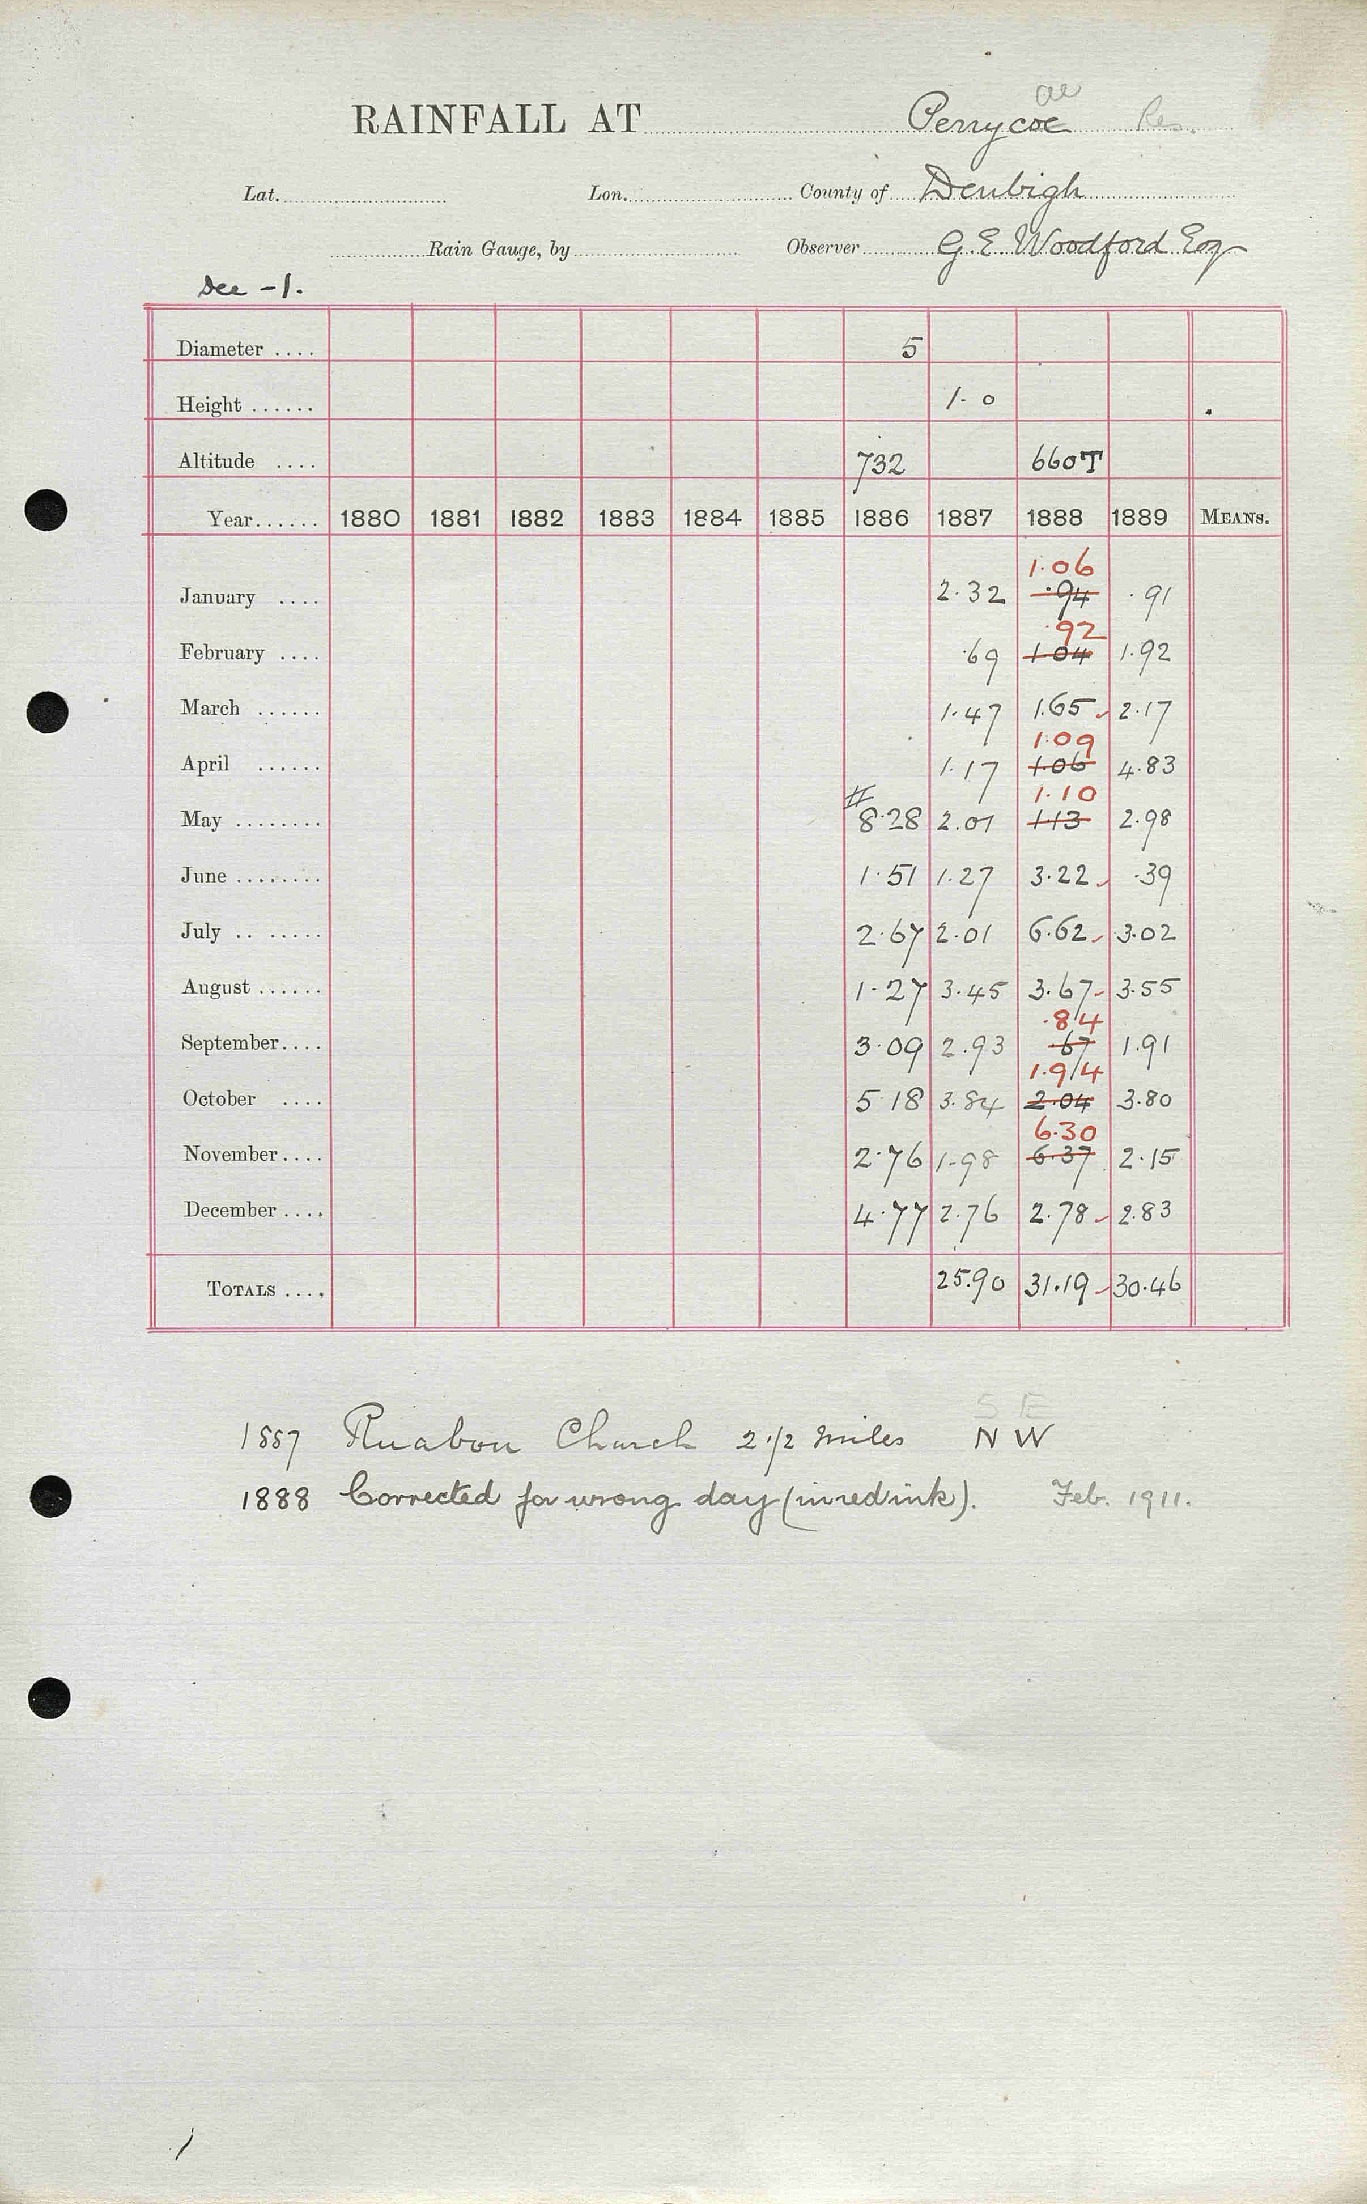 RAINFALL AT Penycoe ae Res.
Lat. Lon. County of Denbigh
Rain Gauge, by Observer G. E Woodford Esq
Dee - 1.
Diameter .... 5
Height ...... 1- 0
Altitude .... 732 660T
Year...... 1880 1881 1882 1883 1884 1885 1886 1887 1888 1889 MEANS.
1.06
January .... 2.32 .94 .91
.92
February .... .69 1.04 1.92
March ...... 1.47 1.65 2.17
1.09
April ...... 1.17 1.06 4.83
# 1.10
May ........ 8.28 2.01 1.13 2.98
June ........ 1.51 1.27 3.22 .39
July .. ..... 2.67 2.01 6.62 3.02
August ...... 1.27 3.45 3.67 3.55
.84
September.... 3.09 2.93 67 1.91
1.94
October .... 5.18 3.84 2.04 3.80
6.30
November.... 2.76 1.98 6.37 2.15
December .... 4.77 2.76 2.78 2.83
TOTALS .... 25.90 31.19 30.46
S E
1887 Ruabon Church 2 1/2 miles N W
1888 Corrected for wrong day (in red ink). Feb. 1911.